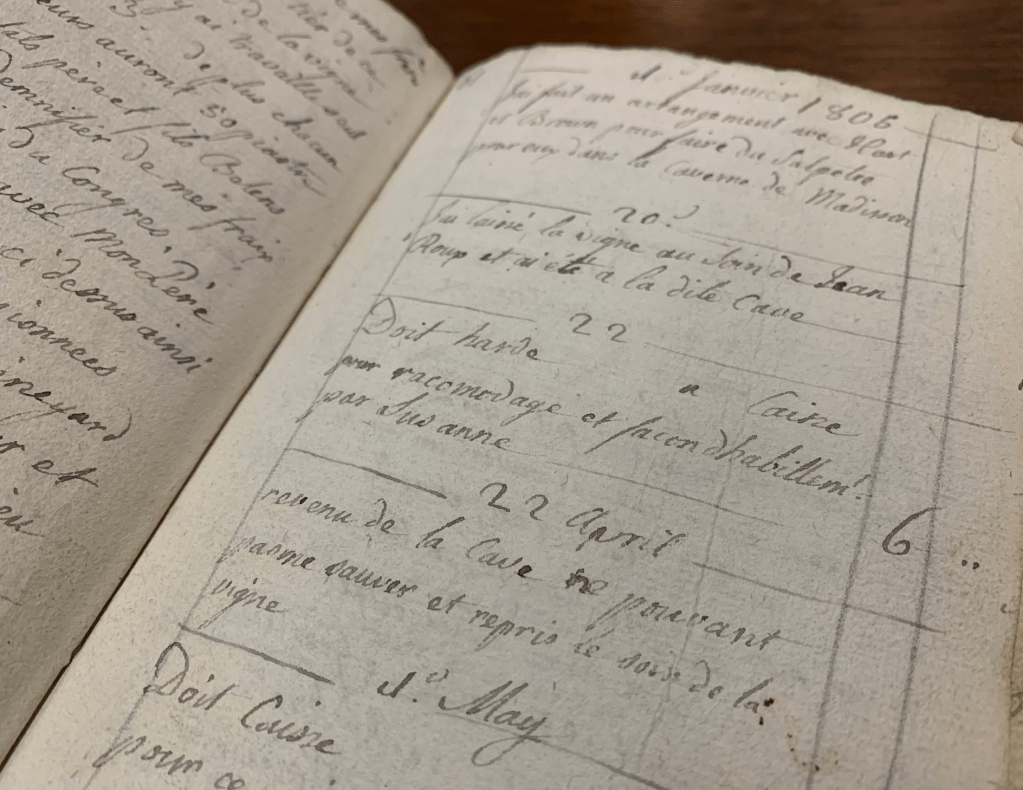 de la vigne
y ai travaillé seul
de plus chacun
eurs auront 50 piastre
fils père et fils Bolens
demnifier de mes fraix
du Congres,
avec Mon Père
ci dessus ainsi
ionnées
ineyard
et
1.º Janvier 1806
Jai fait un arrangement avec
et Brown pour faire du Salpetre
pour eux dans la Caverne de Madisson
20.º
Jai laissé la vigne au soin de Jean
Roup et ai été a la dite Cave
22
Doit harde a Caisse
pour racomodage et facon dhabillemt.
par Susanne
6 ..
22 April
revenu de la Cave ne pouvant
pasme sauver et repris le soin de la
vigne
1.º May
Doit Caisse
pour ce